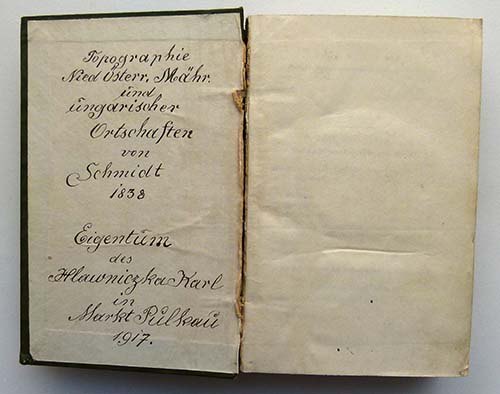 Topographie
Nied Österr, Mähr.
und
ungarischer
Ortschaften
von
Schmidt
1838
Eigentum
des
Hlawniczka Karl
in
Markt Pulkau
1917.